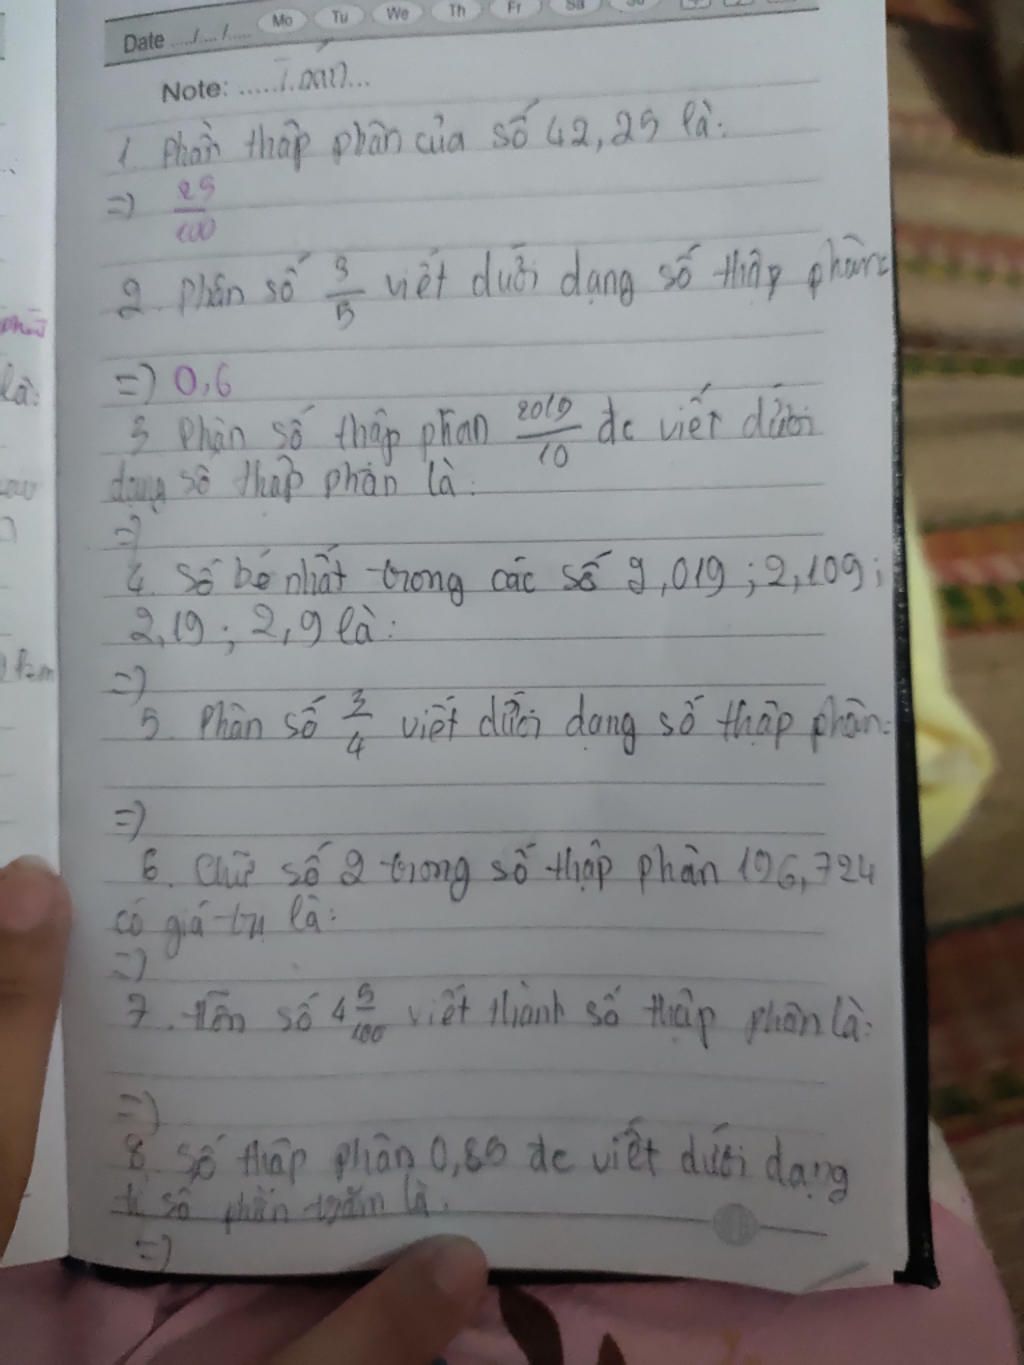 Mo Tu We Th Fr Sa Su
Date ..../..../.....
Note: ......Toán...
1. Phần thập phân của số 42,25 là:
=) 25/100
2. Phân số 3/5 viết dưới dạng số thập phân:
=) 0,6
3 Phân số thập phân 2019/10 đc viết dưới
dạng số thập phân là:
=)
4. Số bé nhất trong các số 2,019; 2,109;
2,19; 2,9 là:
=)
5. Phân số 3/4 viết dưới dạng số thập phân:
=)
6. Chữ số 2 trong số thập phân 196,724
có giá trị là:
=)
7. Hỗn số 4 5/100 viết thành số thập phân là:
=)
8 Số thập phân 0,85 đc viết dưới dạng
tỉ số phần trăm là.
=)
phân
là: